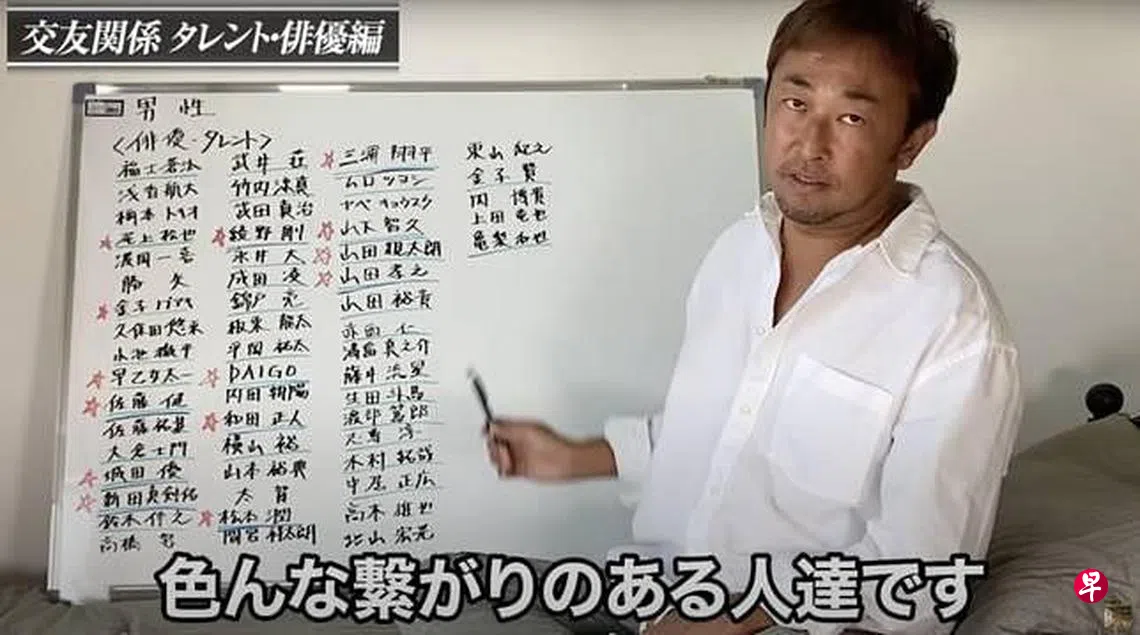 交友関係 タレント・俳優編
男性
<俳優・タレント>
福士蒼汰
浅香航大
柄本トキオ
尾上松也
渡岡一喜
勝 矢
金子ノブアキ
久保田悠来
小池徹平
早乙女太一
佐藤 健
佐藤祐基
大倉士門
城田 優
新田真剣佑
鈴木伸之
武井 荘
竹内涼真
武田真治
綾野剛
永井 大
成田 凌
錦戸 亮
板東 龍太
平岡 祐太
DAIGO
内田 朝陽
和田 正人
横山 裕
山本裕典
太 賀
松本 潤
間宮祥太朗
三浦 翔平
ムロツヨシ
ヤベ キョウスケ
山下 智久
山田親太朗
山田 孝之
山田 裕貴
赤西 仁
満島真之介
藤井 流星
生田 斗馬
渡部 篤郎
木村 拓哉
中居 正広
高木 雄也
北山 宏光
東山 紀之
金子 賢
内 博貴
上田 竜也
亀梨 和也
色んな繋がりのある人達です
早